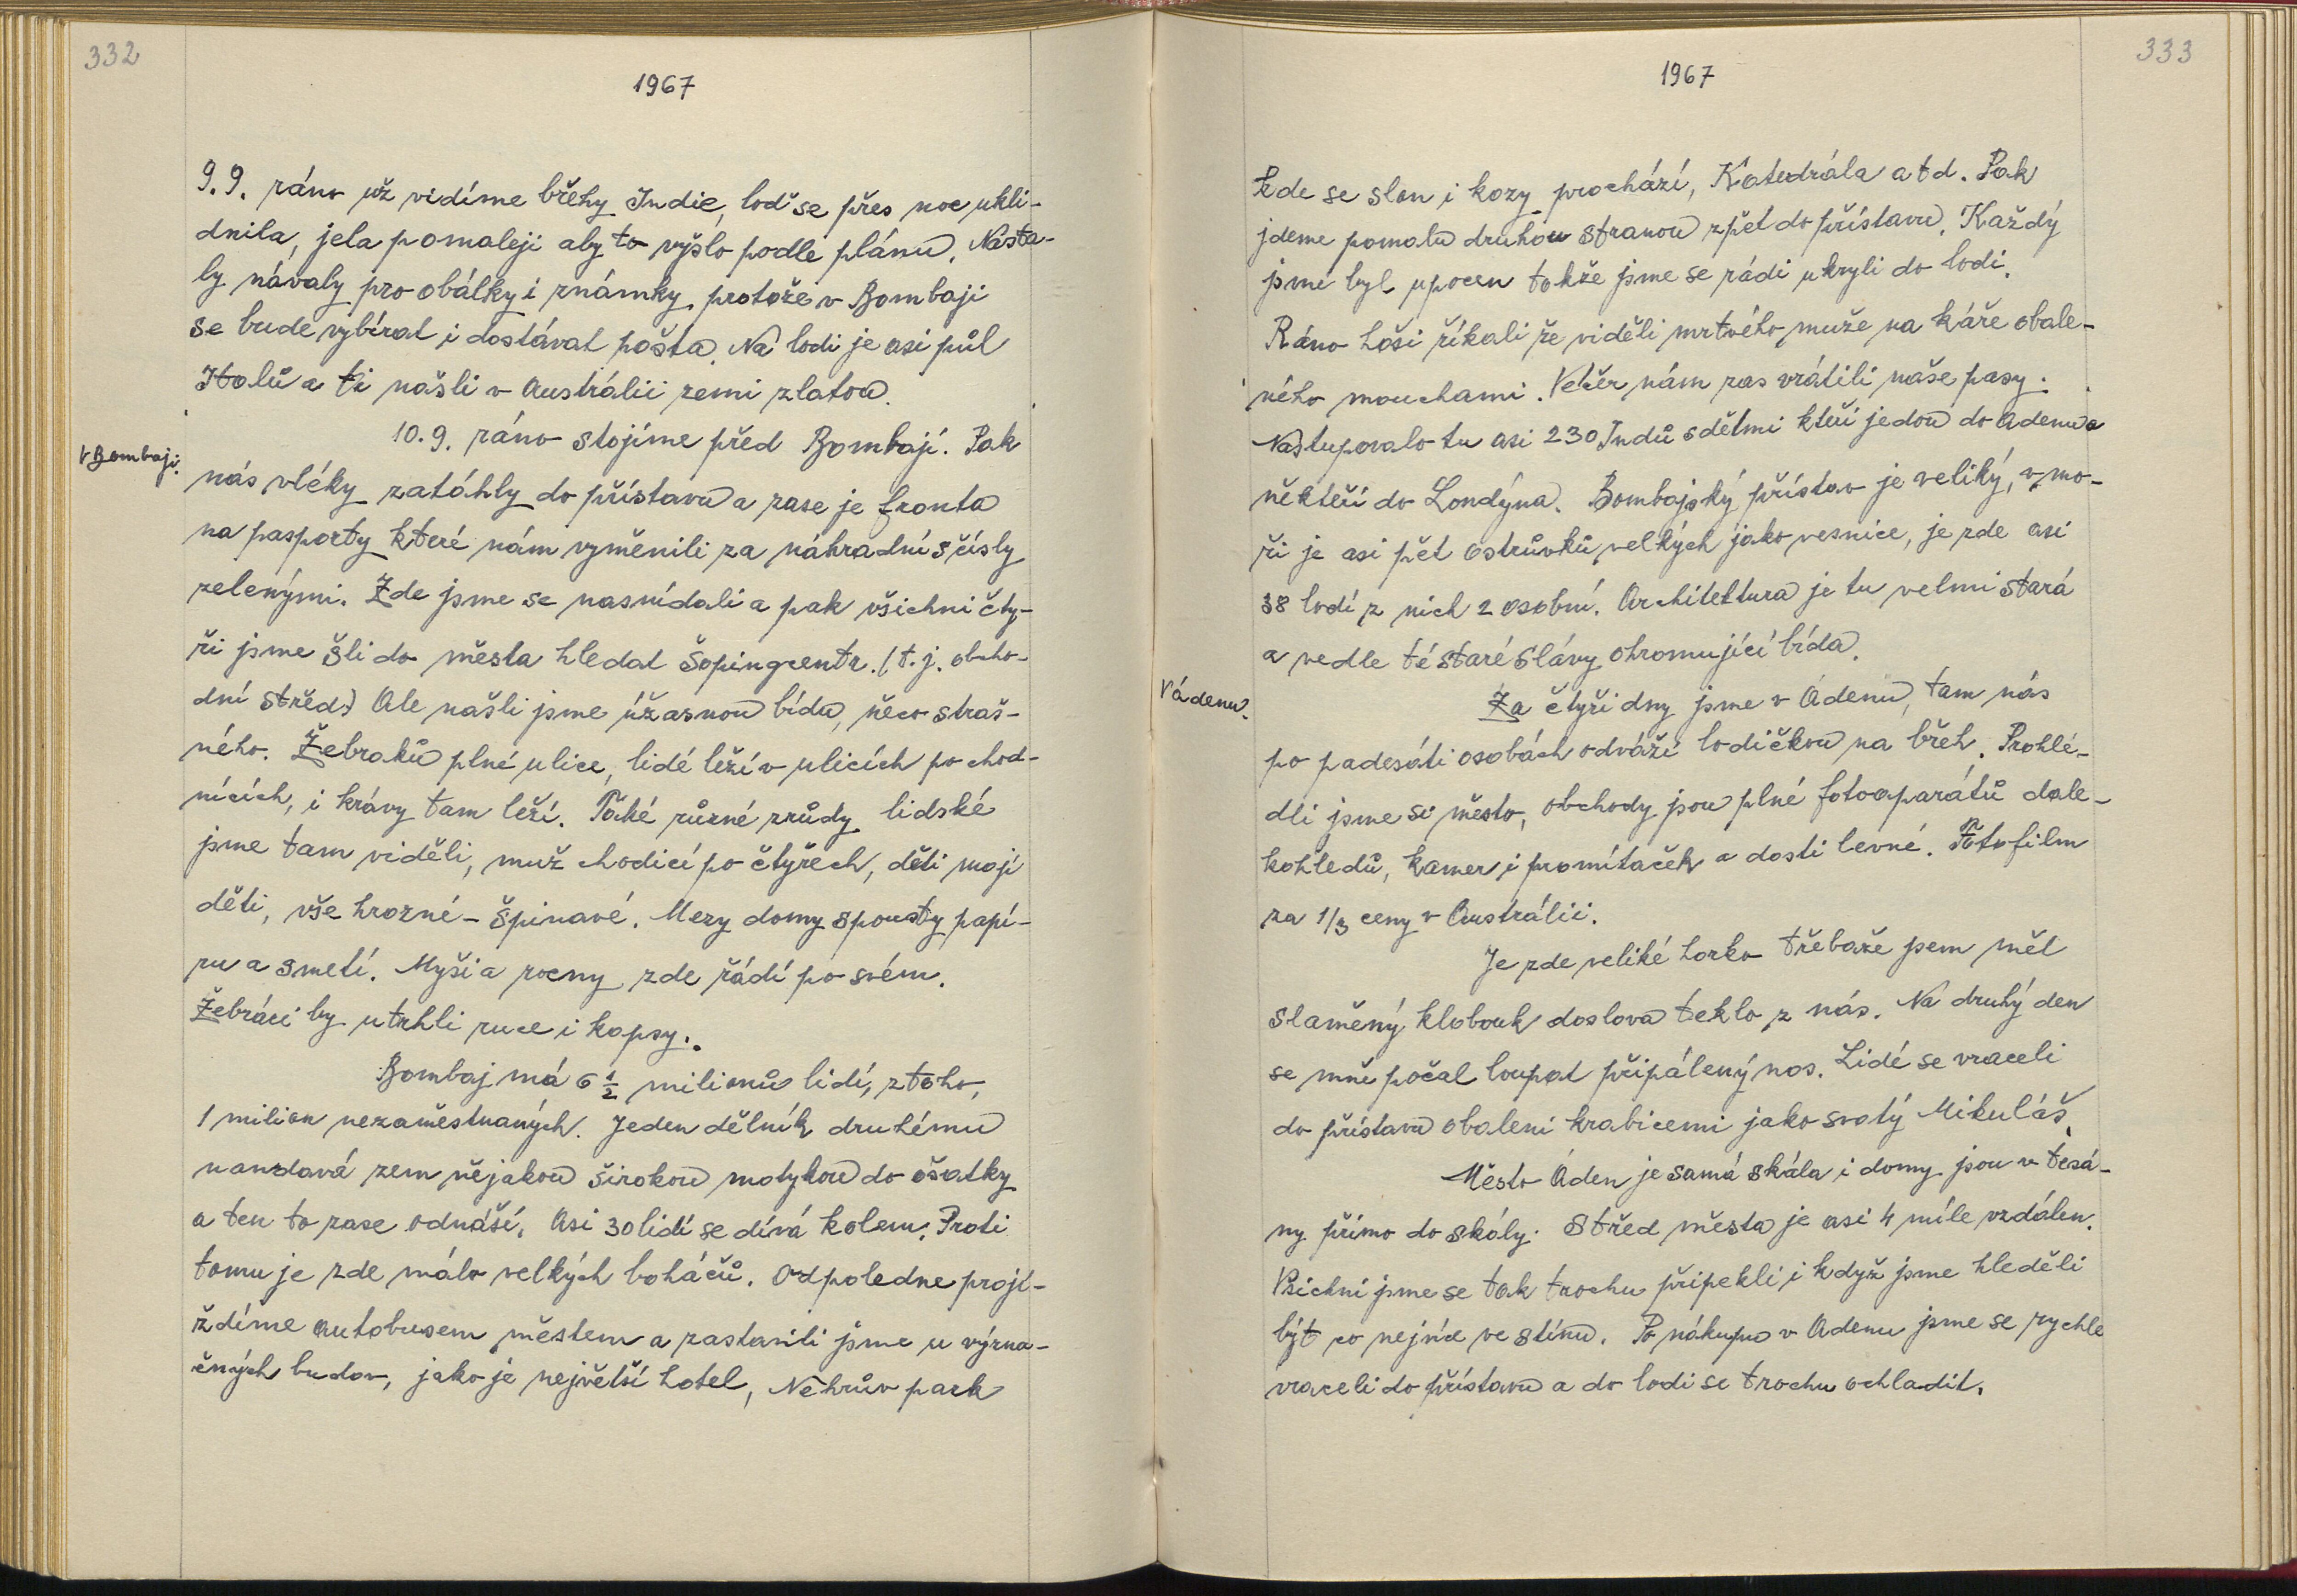 332
1967
9.9. ráno už vidíme břehy Indie, loď se přes noc ukli-
dnila, jela pomaleji aby to vyšlo podle plánu. Nasta-
ly návaly pro obálky i známky, protože v Bombaji
se bude vybírat i dostávat pošta. Na lodi je asi půl
Italů a ti našli v Austrálii zemi zlatou.
10.9. ráno stojíme před Bombají. Pak
V Bombaji.
nás vléky zatáhly do přístavu a zase je fronta
na pasporty které nám vyměnili za náhradní s čísly
zelenými. Zde jsme se nasnídali a pak všichni čty-
ři jsme šli do města hledat šopingcentr. (t.j. obcho-
dní střed) Ale našli jsme úžasnou bídu, něco straš-
ného. Žebráků plné ulice, lidé leží v ulicích po chod-
nících, i krávy tam leží. Také různé zrůdy lidské
jsme tam viděli, muž chodicí po čtyřech, děti mají
děti, vše hrozné - špinavé. Mezy domy spousty papí-
ru a smetí. Myši a rocny zde řádí po svém.
Žebráci by utrhli ruce i kapsy.
Bombaj má 6 1/2 milionů lidí, z toho,
1 milion nezaměstnaných. Jeden dělník druhému
nandavá zem nějakou širokou motykou do ošatky
a ten to zase odnáší. Asi 30 lidí se dívá kolem. Proti
tomu je zde málo velkých boháčů. Odpoledne projí-
ždíme autobusem městem a zastavili jsme u význa-
čných budov, jako je největší hotel, Néhrův park
333
1967
kde se slon i kozy prochází, Katedrála a t d. Pak
jdeme pomalu druhou stranou zpět do přístavu. Každý
jsme byl upocen takže jsme se rádi ukryli do lodi.
Ráno hoši říkali že viděli mrtvého muže na káře obale-
ného mouchami. Večer nám zas vrátili naše pasy.
Nastupovalo tu asi 230 Indů s dětmi kteří jedou do Adenu a
někteří do Londýna. Bombajský přístav je veliký, v mo-
ři je asi pět ostrůvků velkých jako vesnice, je zde asi
38 lodí z nich 2 osobní. Architektura je tu velmi stará
a vedle té staré slávy ohromující bída.
V ádenu.
Za čtyři dny jsme v Ádenu, tam nás
po padesáti osobách odváží lodičkou na břeh. Prohlé-
dli jsme si město, obchody jsou plné fotoaparátů dale-
kohledů, kamer i promítaček a dosti levné. Fotofilm
za 1/3 ceny v Austrálii.
Je zde veliké horko třebaže jsem měl
slaměný klobouk doslova teklo z nás. Na druhý den
se mně počal loupat připálený nos. Lidé se vraceli
do přístavu obaleni krabicemi jako svatý Mikuláš.
Město Áden je samá skála i domy jsou v tesá-
ny přímo do skály. Střed města je asi 4 míle vzdálen.
Všichni jsme se tak trochu připekli i když jsme hleděli
být co nejvíce ve stínu. Po nákupu v Adenu jsme se rychle
vraceli do přístavu a do lodi se trochu ochladit.